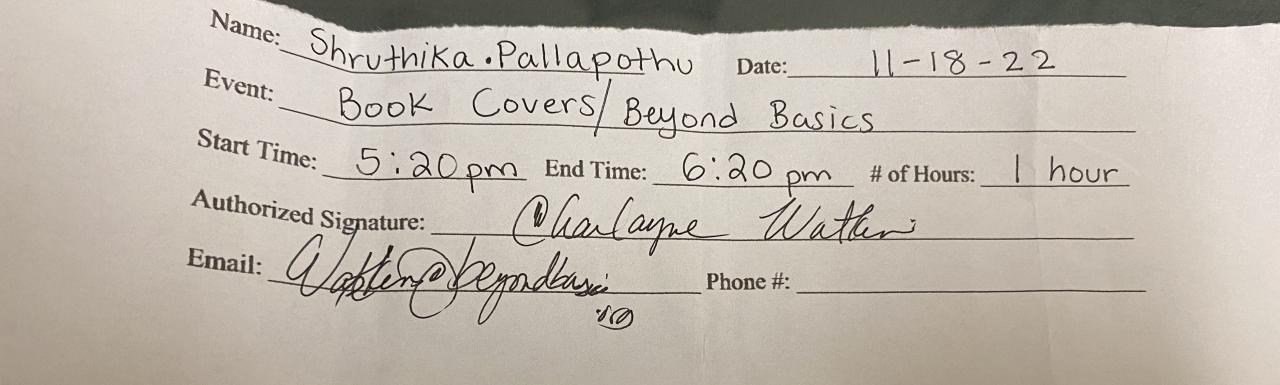 Name: Shruthika.Pallapothu Date: 11-18-22
Event: Book Covers/Beyond Basics
Start Time: 5:20pm End Time: 6:20 pm # of Hours: 1 hour
Authorized Signature: Charlayne
Email: Phone #: